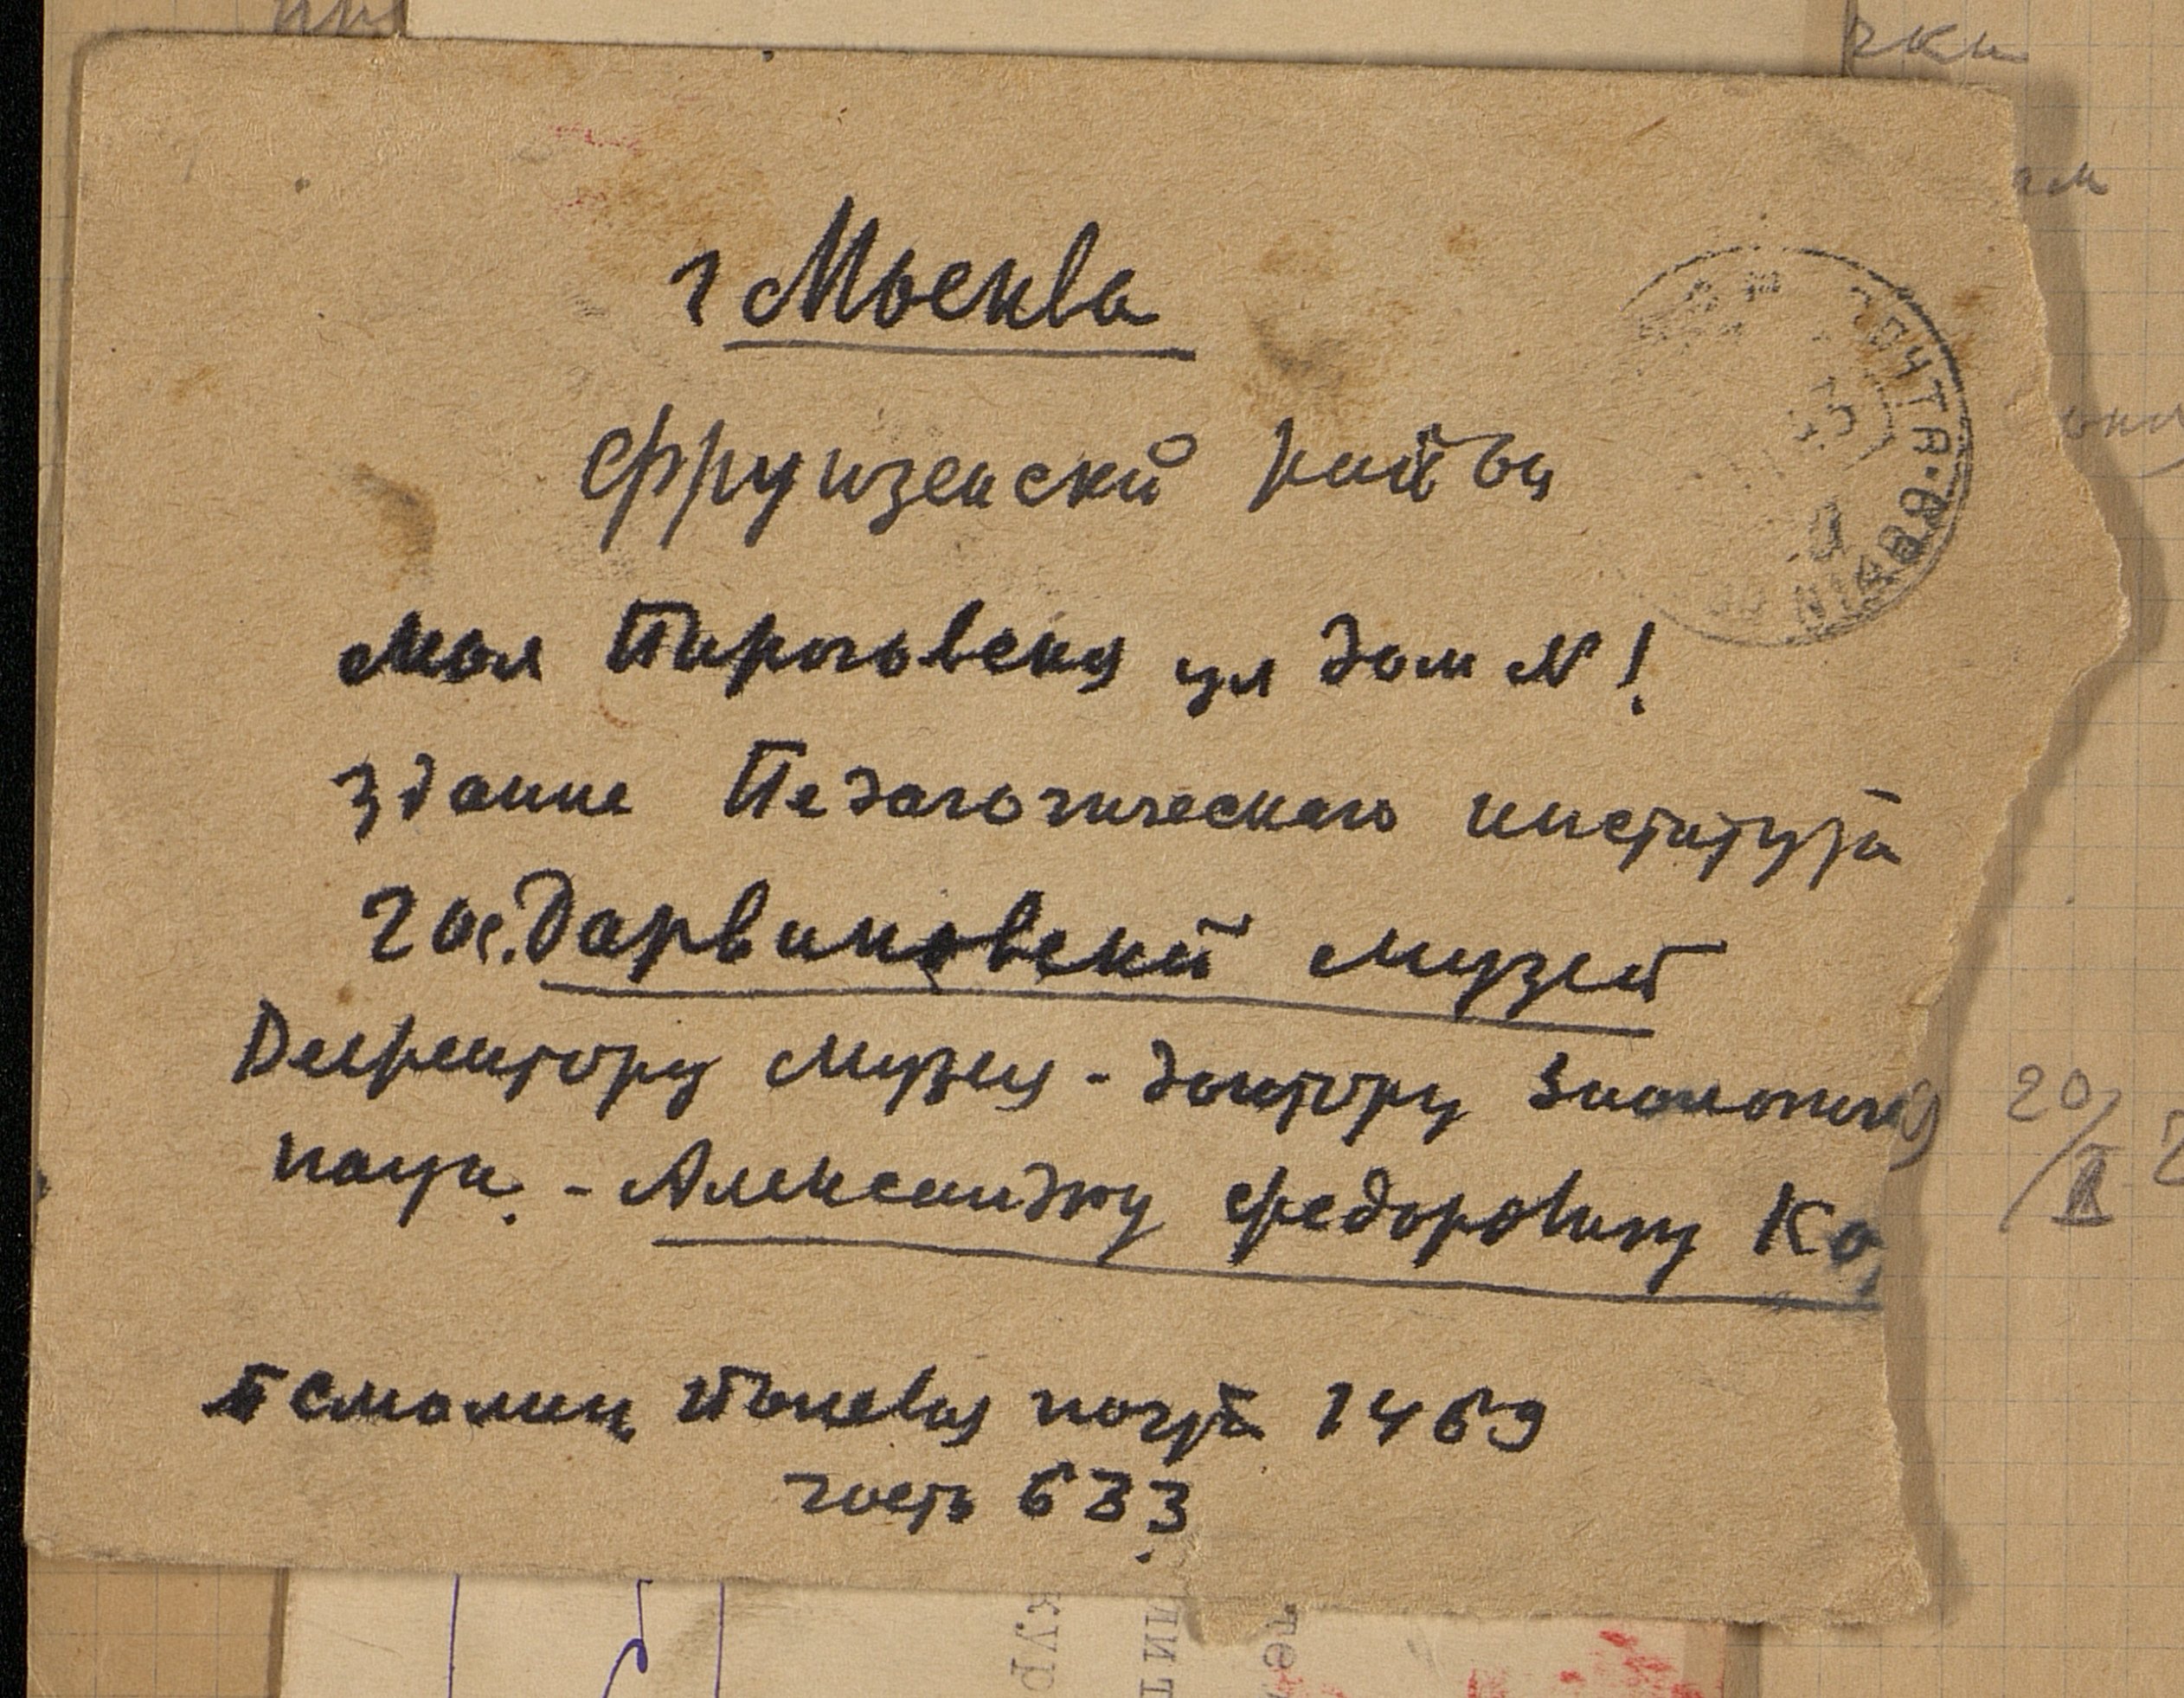 г Москва
Фрунзенский район
Малая Пироговская ул дом № 1
Здание Педагогического института
Гос. Дарвиновский музей
Директору музея - доктору биологич
наук. - Александру Федоровичу Ко
полевая почта 1469
часть 633
ПОЧТА
20/II